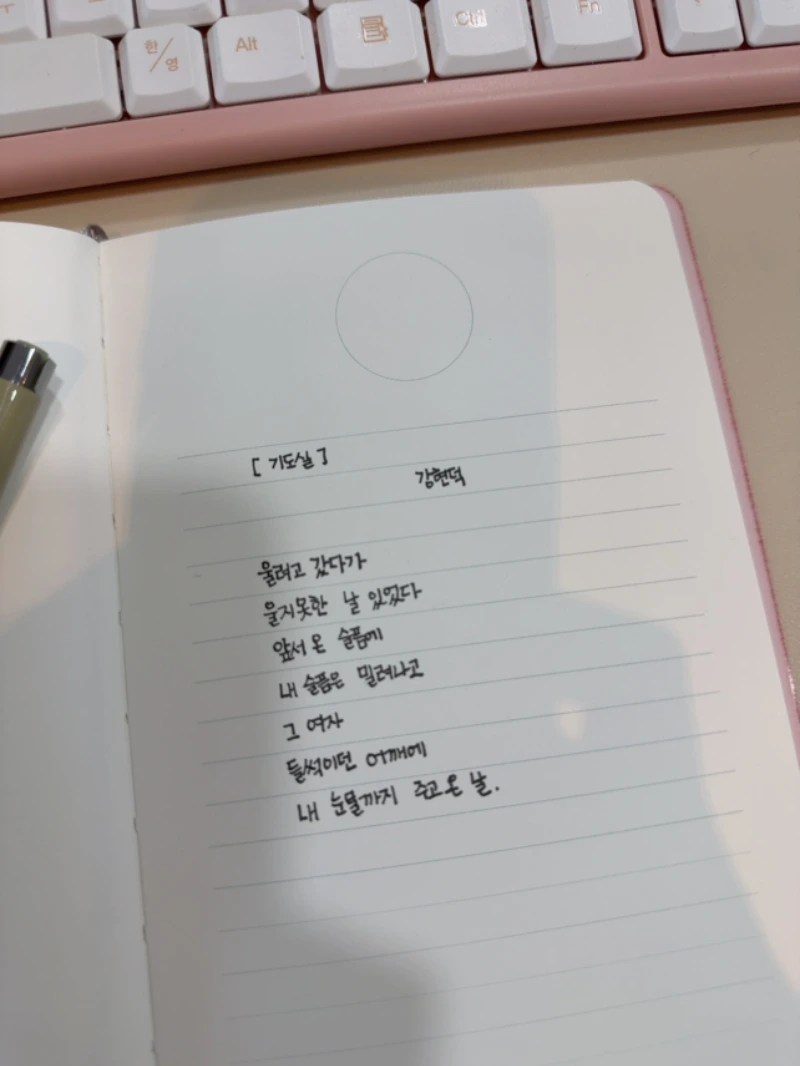 한/영
Alt
Ctrl
Fn
[기도실]
강현덕
울려고 갔다가
울지못한 날 있었다
앞서 온 슬픔에
내 슬픔은 밀려나고
그 여자
들썩이던 어깨에
내 눈물까지 주고 온 날.